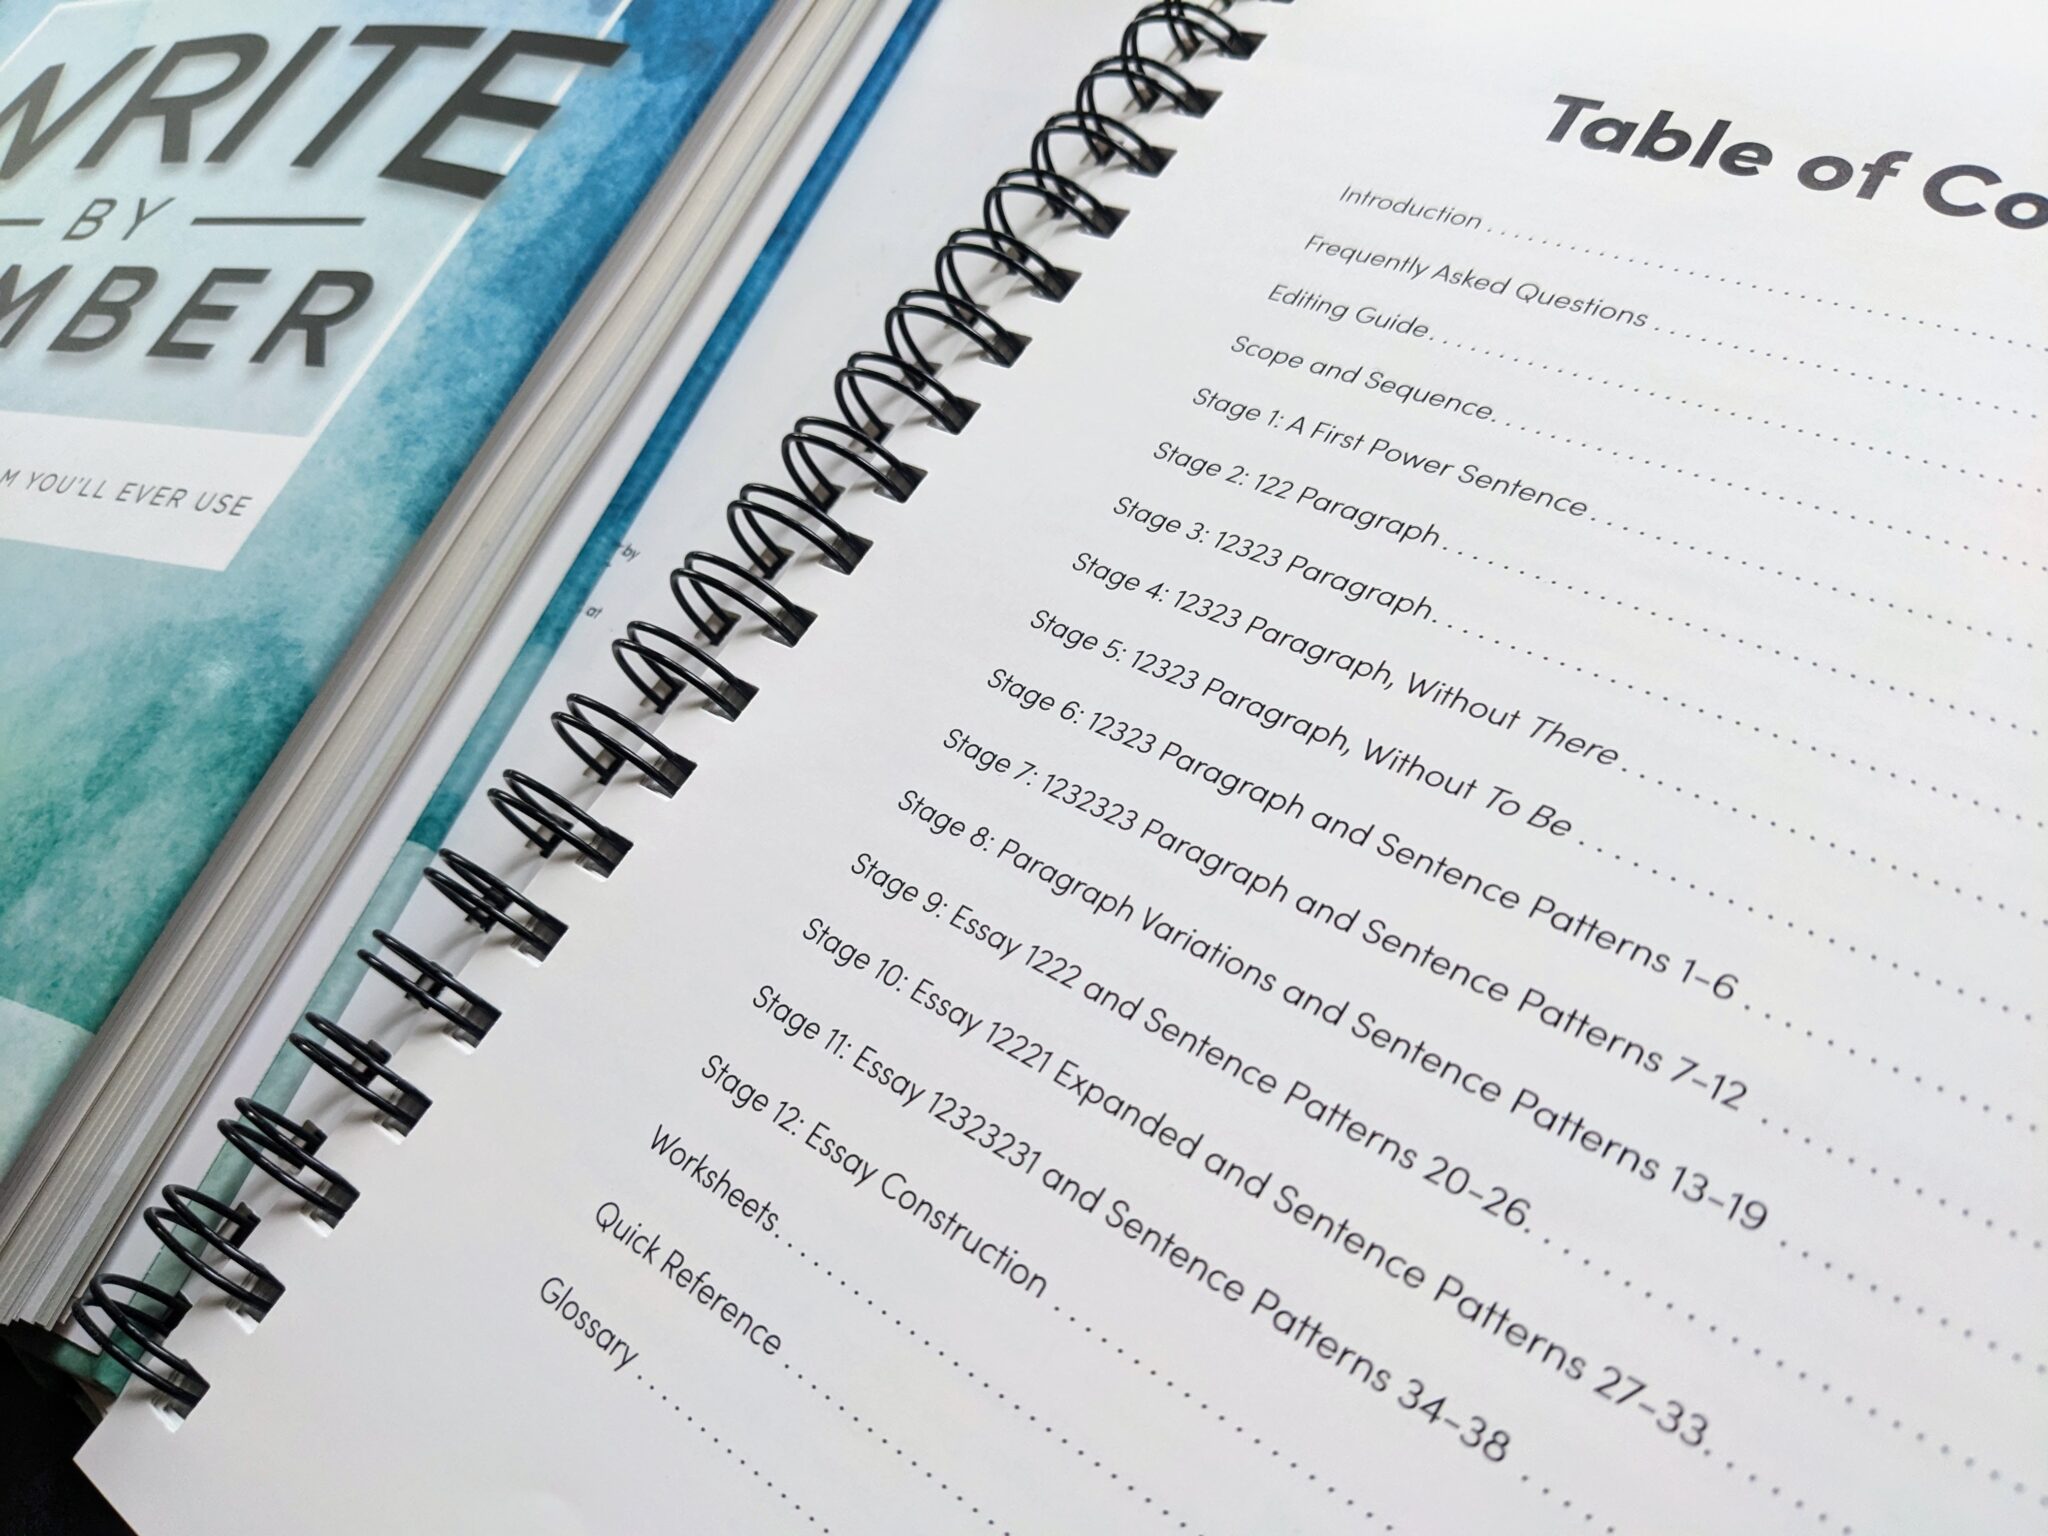 WRITE
BY
MBER
M YOU'LL EVER USE
by
at
Table of Co
Introduction
Frequently Asked Questions
Editing Guide
Scope and Sequence
Stage 1: A First Power Sentence
Stage 2: 122 Paragraph
Stage 3: 12323 Paragraph
Stage 4: 12323 Paragraph, Without There
Stage 5: 12323 Paragraph, Without To Be
Stage 6: 12323 Paragraph and Sentence Patterns 1–6
Stage 7: 1232323 Paragraph and Sentence Patterns 7–12
Stage 8: Paragraph Variations and Sentence Patterns 13–19
Stage 9: Essay 1222 and Sentence Patterns 20–26
Stage 10: Essay 12221 Expanded and Sentence Patterns 27–33
Stage 11: Essay 12323231 and Sentence Patterns 34–38
Stage 12: Essay Construction
Worksheets
Quick Reference
Glossary